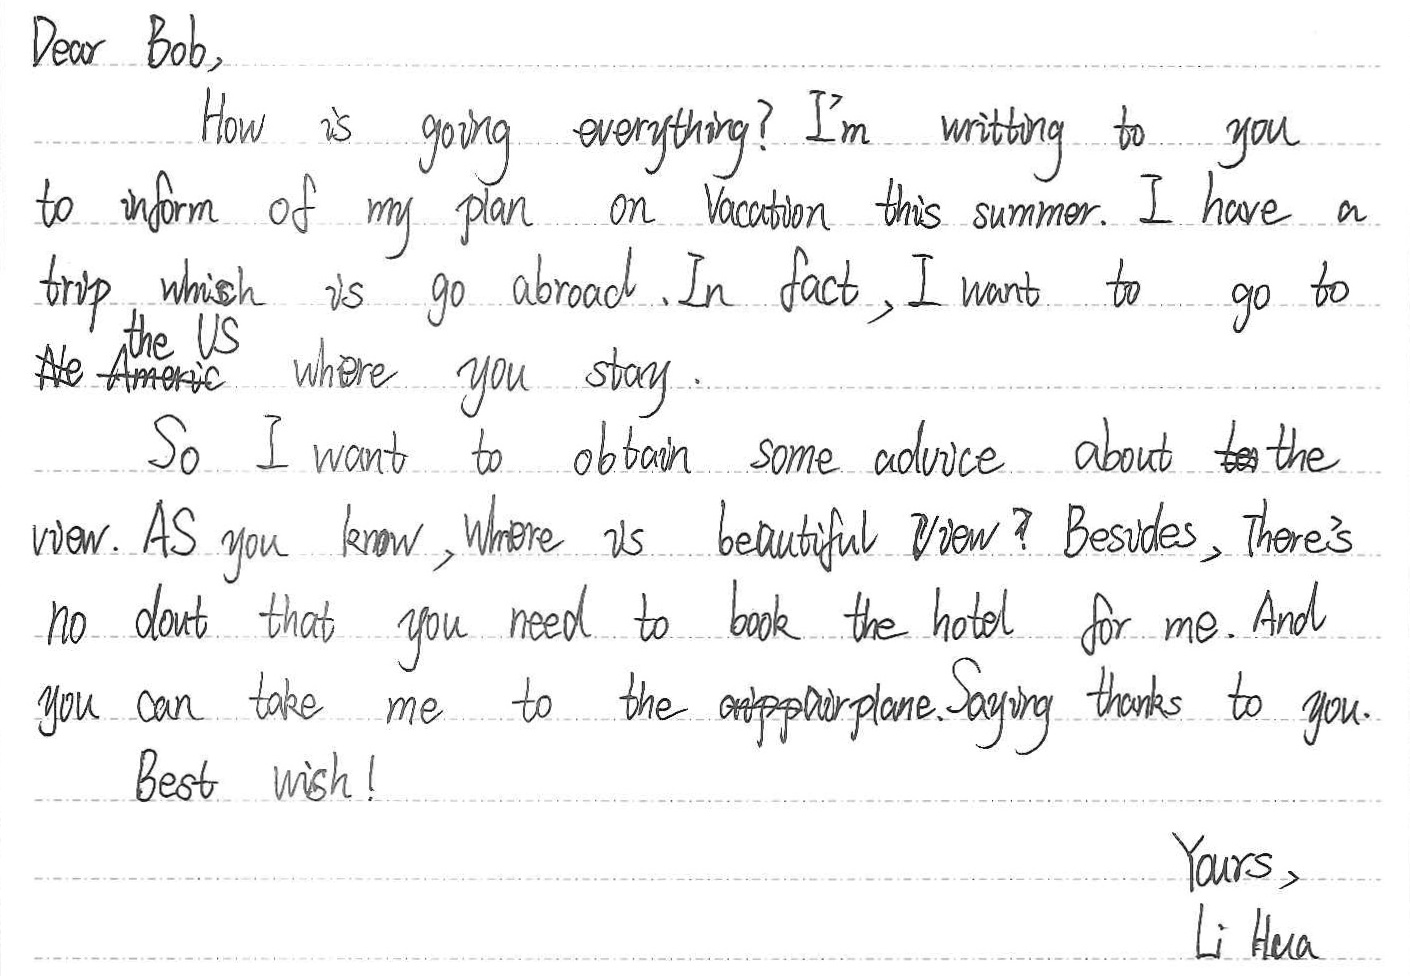 Dear Bob,
How is going everything? I'm writting to you
to inform of my plan on Vacation this summer. I have a
trip which is go abroad. In fact, I want to go to
the US
where you stay.
So I want to obtain some advice about the
view. AS you know, Where is beautiful View? Besides, There's
no dout that you need to book the hotel for me. And
you can take me to the airplane. Saying thanks to you.
Best wish!
Yours,
Li Hua